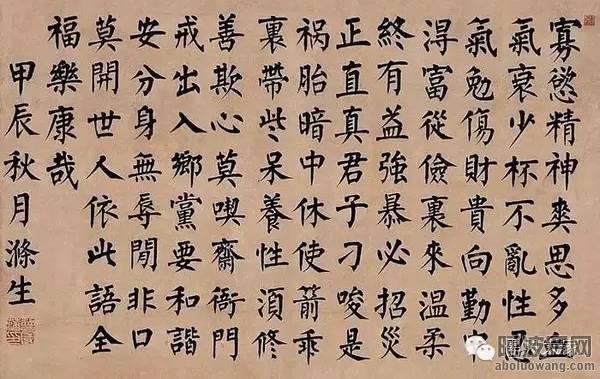 寡慾精神爽思多血
氣衰少杯不亂性忍
氣勉傷財貴向勤中
淂富從儉裏來溫柔
終有益強暴必招災
正直真君子刁唆是
祸胎暗中休使箭乖
裏帶些呆養性湏修
善欺心莫喫齋衙門
戒出入鄉黨要和諧
安分身無辱閒非口
莫開世人依此語全
福樂康哉
甲辰秋月滌生
aboluowang.com